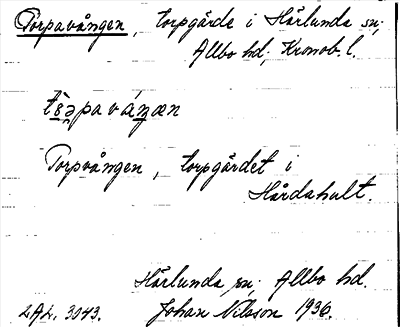 Torpavången, torpgärde i Härlunda sn;
Allbo hd; Kronob. l.
Torpvången, torpgärdet i
Hårdahult.
Härlunda sn. Allbo hd.
LAL. 3043. Johan Nilsson 1936.